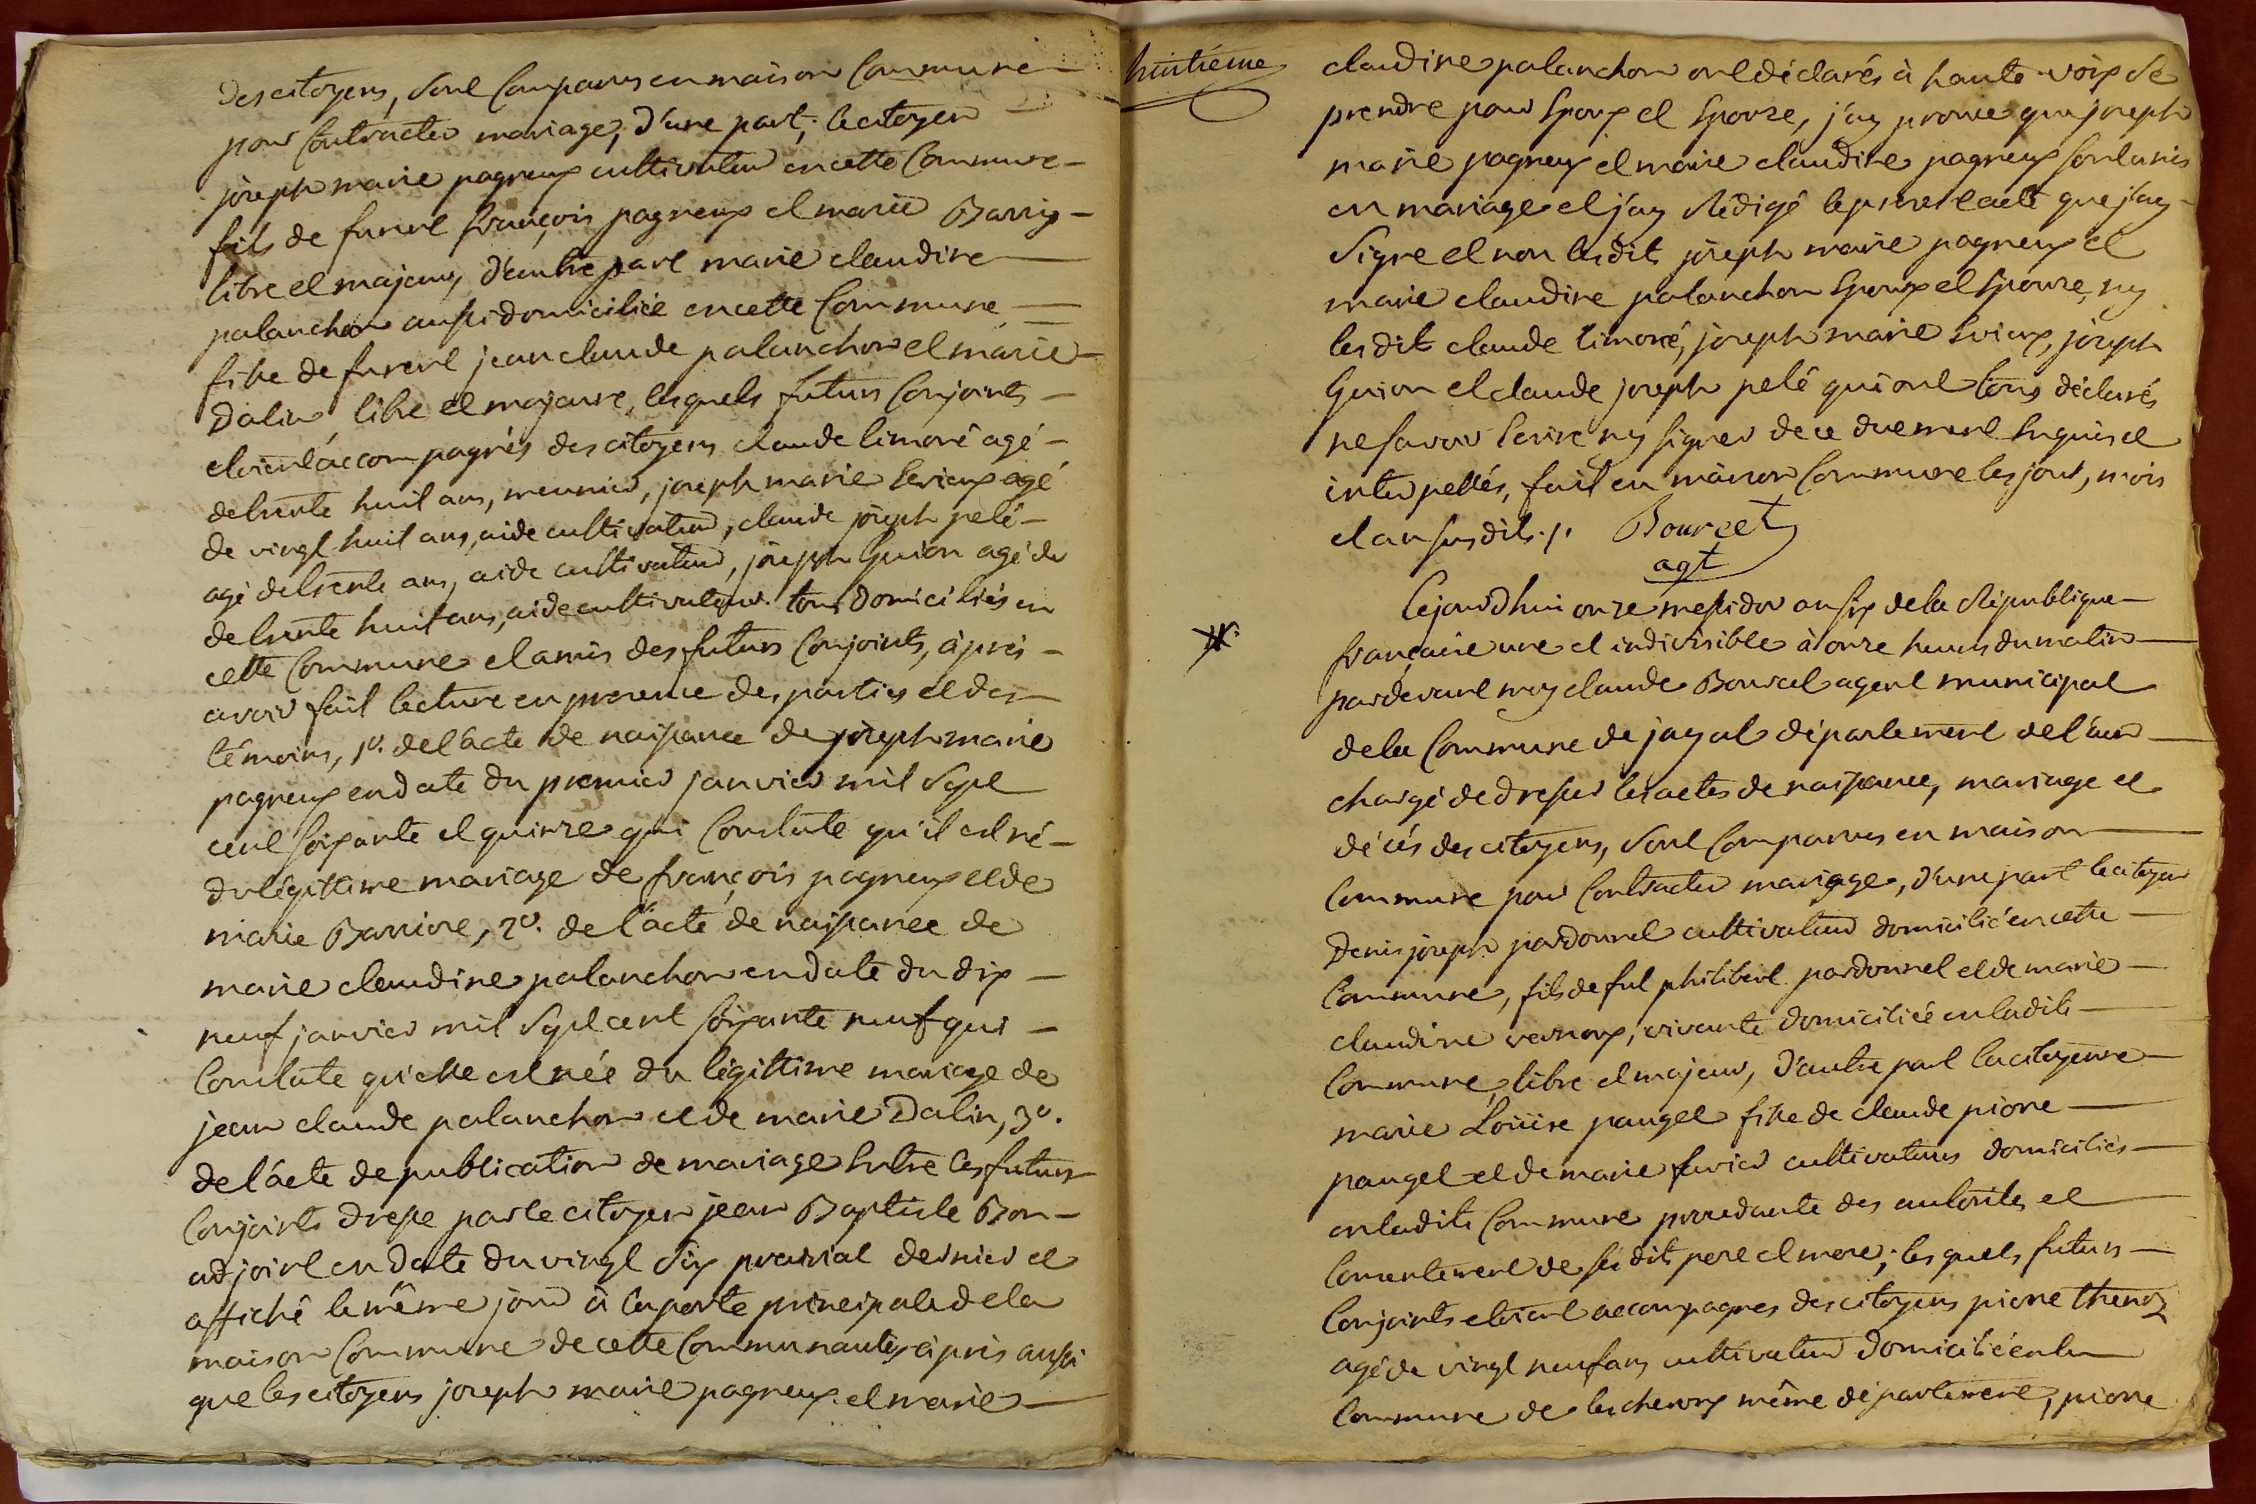 des citoyens, sont comparus en maison Commune
pour Contracter mariage, d'une part, le citoyen
joseph marie pagneux cultivateur en cette Commune
fils de furent françois pagneux et marie Barriz
libre et majeur, d'autre part marie claudine
palanchon aussi domiciliée en cette Commune
fille de furent jean claude palanchon et marie
Dalin libre et majeure, lesquels futurs Conjoints
etoient accompagnés des citoyens claude limoné agé
de trente huit ans, meunier, joseph marie Levieux agé
de vingt huit ans, aide cultivateur, claude joseph pelé
agé de trente ans, aide cultivateur, joseph Guion agé de
de trente huit ans, aide cultivateur. tous domiciliés en
cette Commune et amis des futurs Conjoints, après
avoir fait lecture en presence des parties et des
témoins, 1º. de l'acte de naissance de joseph marie
pagneux en date du premier janvier mil Sept
cent soixante et quinze qui Constate qu'il est né
du légittime mariage de françois pagneux et de
marie Barrioz, 2º. de l'acte de naissance de
marie claudine palanchon en date du dix
neuf janvier mil Sept cent soixante neuf qui
Constate qu'elle est née du légittime mariage de
jean claude palanchon et de marie Dalin, 3º.
de l'acte de publication de mariage Entre les futurs
Conjoints dressé par le citoyen jean Baptiste Bon
adjoint en date du vingt Six prairial dernier et
affiché le même jour à la porte principale de la
maison Commune de cette Communauté, après aussi
que les citoyens joseph marie pagneux et marie
huitiéme
claudine palanchon ont déclarés à haute voix se
prendre pour Epoux et Epouse, j'ay prononcé que joseph
marie pagneux et marie claudine pagneux sont unis
en mariage et j'ay rédigé le present acte que j'ay
Signe et non lesdits joseph marie pagneux et
marie claudine palanchon Epoux et Epouse, ny
lesdits claude limoné, joseph marie Levieux, joseph
Guion et claude joseph pelé qui ont tous déclarés
ne savoir Ecrire ny signer de ce duement Enquis et
interpellés, fait en maison Commune les jour, mois
et an susdits./. Bourcet
agt
Cejourd'hui onze messidor an six de la République
française une et indivisible à onze heures du matin
pardevant moy claude Bourcet agent municipal
de la Commune de jayat département de l'ain
chargé de dresser les actes de naissance, mariage et
décés des citoyens, Sont Comparus en maison
Commune pour Contracter mariage, d'une part le citoyen
Denis joseph pardonnel cultivateur domicilié en cette
Commune, fils de fut philibert pardonnel et de marie
claudine vernoux, vivante domiciliée en ladite
Commune, libre et majeur, d'autre part la citoyenne
marie Loüise pauget fille de claude pierre
pauget et de marie cultivateurs domiciliés
en ladite Commune procedante des autorités et
Consentement de ses dits pere et mere; lesquels futurs
Conjoints etoient accompagnés des citoyens pierre thenoz
agé de vingt neuf ans cultivateur domicilié en la
Commune de lescheroux même département, pierre